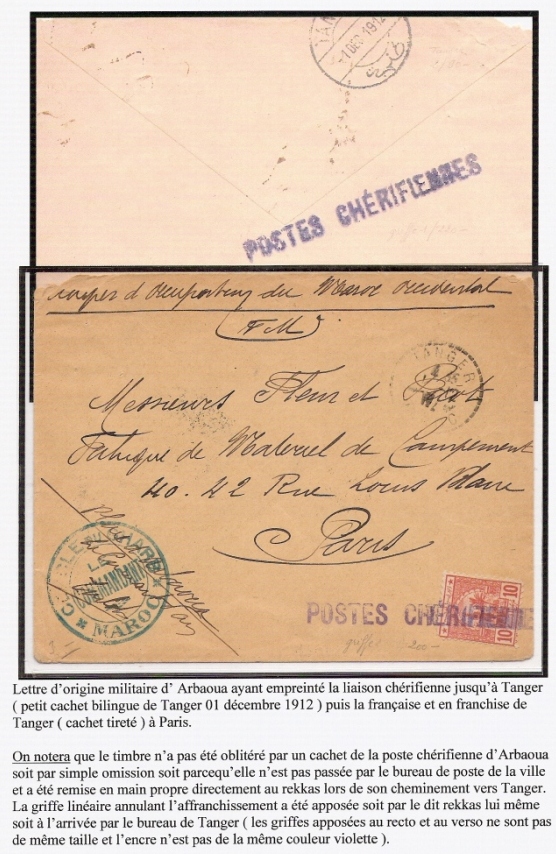 TAN
-1 DEC 1912
POSTES CHÉRIFIENNES
Troupes d'Occupation du Maroc Occidental
(F M)
TANGER
Messieurs Fleur et
Fabrique de Materiel de Campement
40.42 Rue Louis Blanc
Paris
LE
COMMANDANT
MAROC
10
10
POSTES CHÉRIFIENNES
griffe 200-
Lettre d'origine militaire d' Arbaoua ayant empreinté la liaison chérifienne jusqu'à Tanger
( petit cachet bilingue de Tanger 01 décembre 1912 ) puis la française et en franchise de
Tanger ( cachet tireté ) à Paris.
On notera que le timbre n'a pas été oblitéré par un cachet de la poste chérifienne d'Arbaoua
soit par simple omission soit parcequ'elle n'est pas passée par le bureau de poste de la ville
et a été remise en main propre directement au rekkas lors de son cheminement vers Tanger.
La griffe linéaire annulant l'affranchissement a été apposée soit par le dit rekkas lui même
soit à l'arrivée par le bureau de Tanger ( les griffes apposées au recto et au verso ne sont pas
de même taille et l'encre n'est pas de la même couleur violette ).